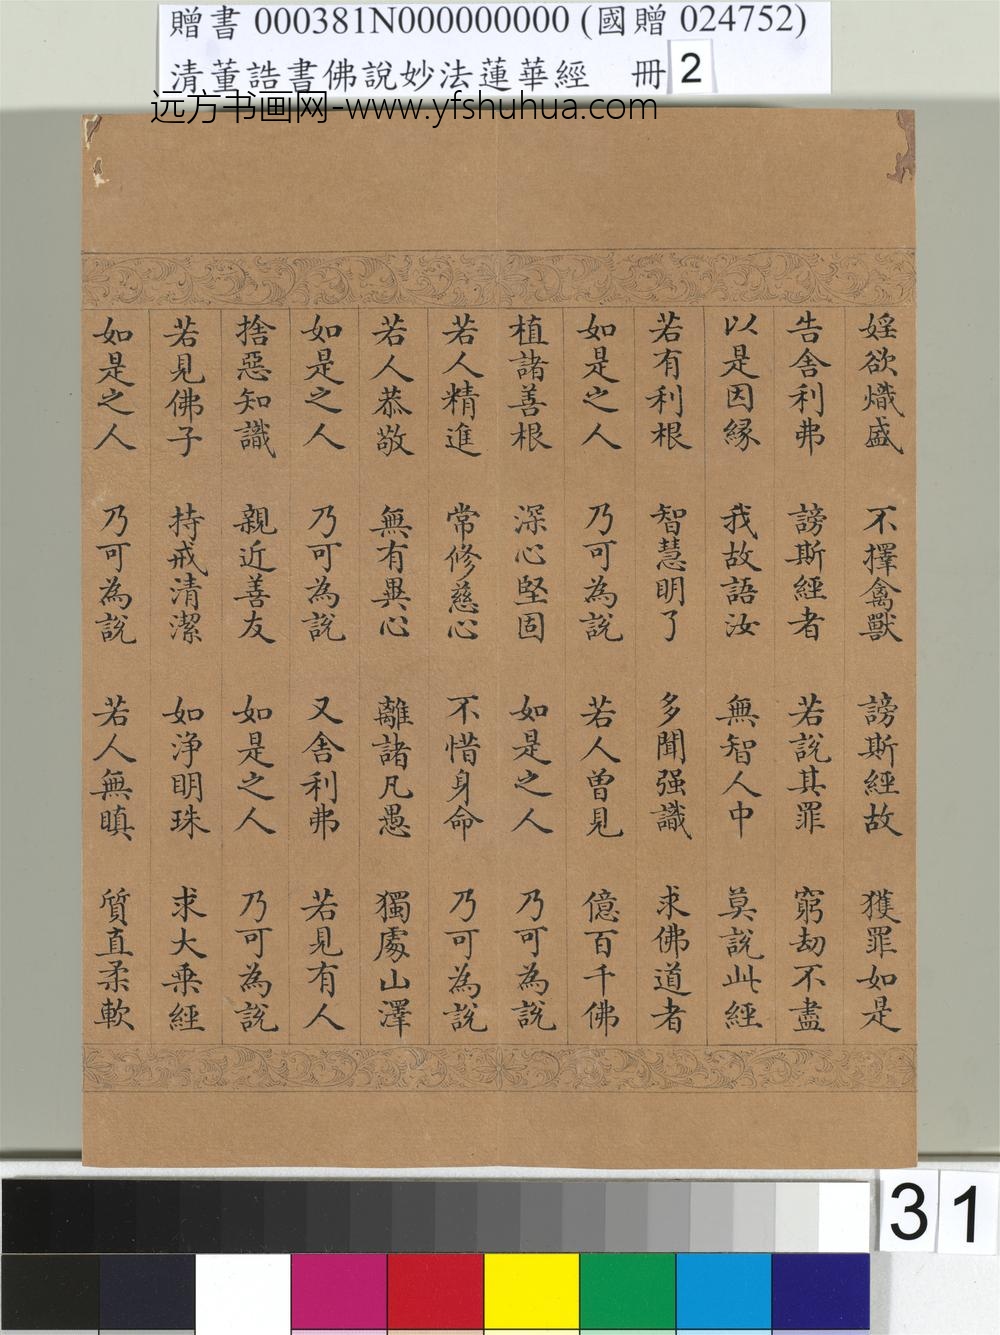 贈書 000381N000000000 (國贈 024752)
清董誥書佛說妙法蓮華經 冊 2
远方书画网-www.yfshuhua.com
婬欲熾盛 不擇禽獸 謗斯經故 獲罪如是
告舍利弗 謗斯經者 若說其罪 窮劫不盡
以是因緣 我故語汝 無智人中 莫說此經
若有利根 智慧明了 多聞强識 求佛道者
如是之人 乃可為說 若人曾見 億百千佛
植諸善根 深心堅固 如是之人 乃可為說
若人精進 常修慈心 不惜身命 乃可為說
若人恭敬 無有異心 離諸凡愚 獨處山澤
如是之人 乃可為說 又舍利弗 若見有人
捨惡知識 親近善友 如是之人 乃可為說
若見佛子 持戒清潔 如淨明珠 求大乘經
如是之人 乃可為說 若人無瞋 質直柔軟
31